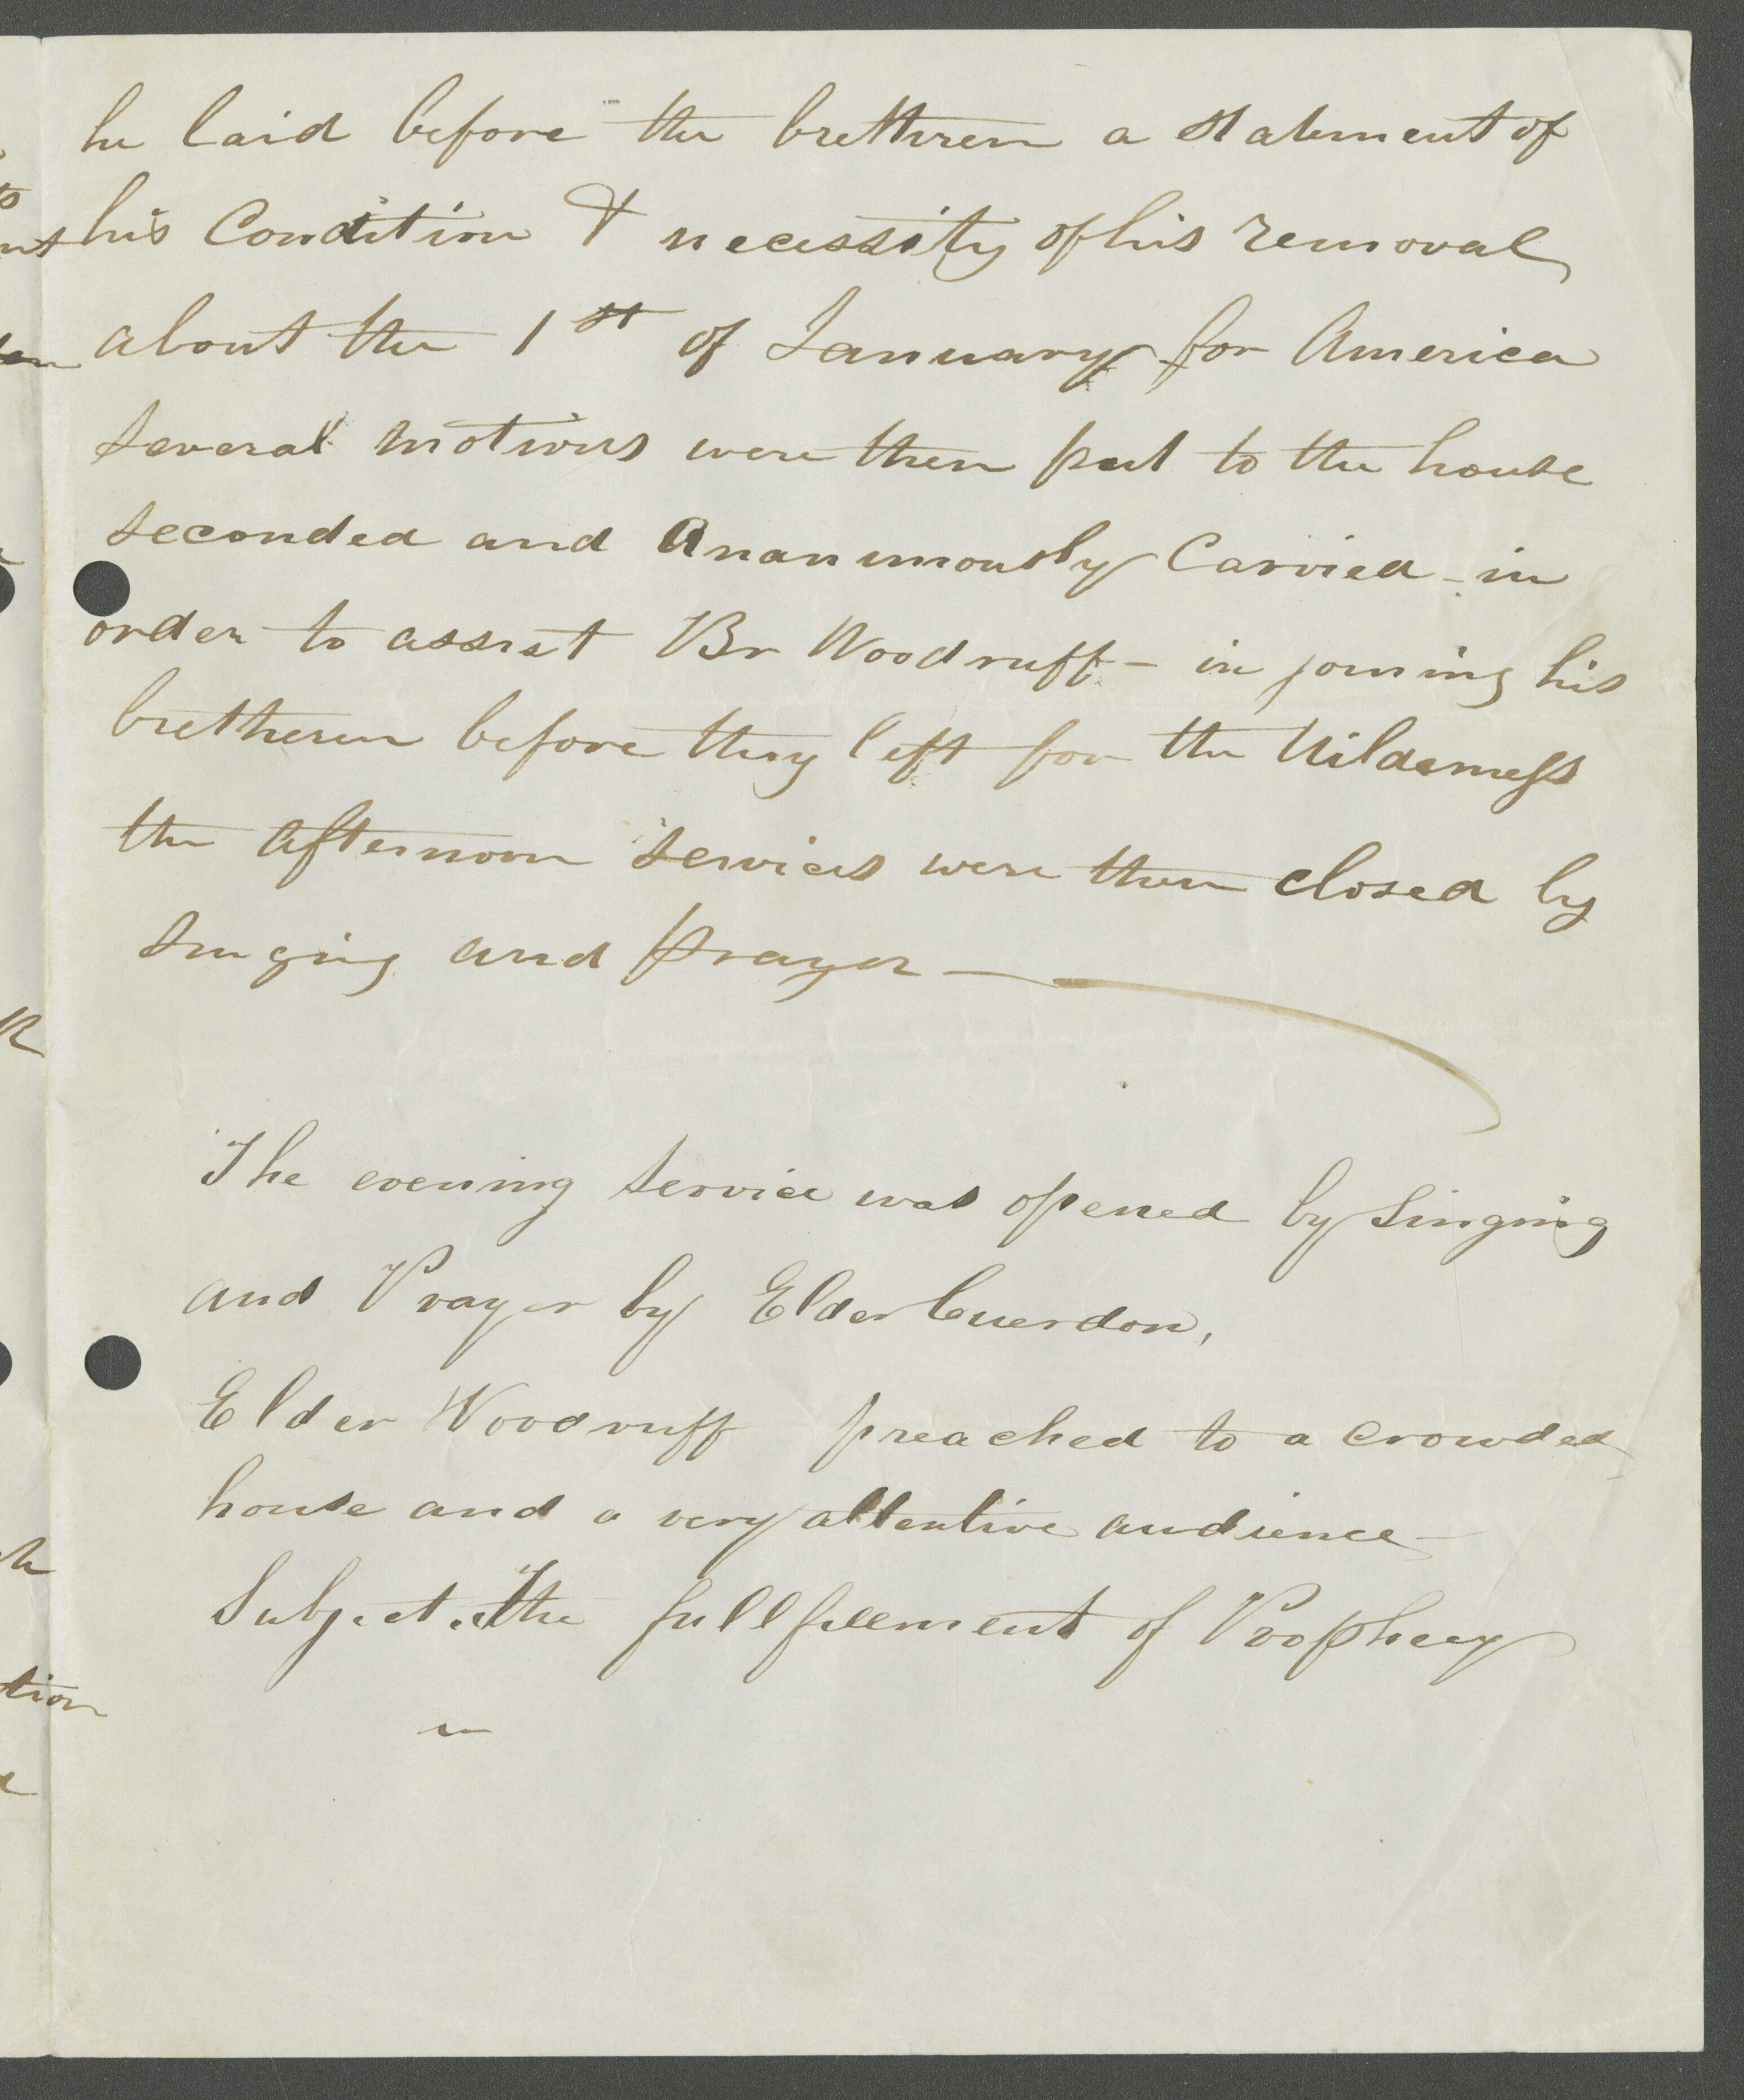 he laid before the brethren a statement of
his Condition & necessity of his removal
about the 1st of January for America
several motions were then put to the house
seconded and Ananimously Carried - in
order to assist Br Woodruff - in joining his
bretheren before they left for the Wilderness
the afternoon services were then closed by
singing and prayer —
The evening service was opened by Singing
and Prayer by Elder Cuerdon,
Elder Woodruff preached to a crowded
house and a very attentive audience
Subject. The fullfillment of Prophecy